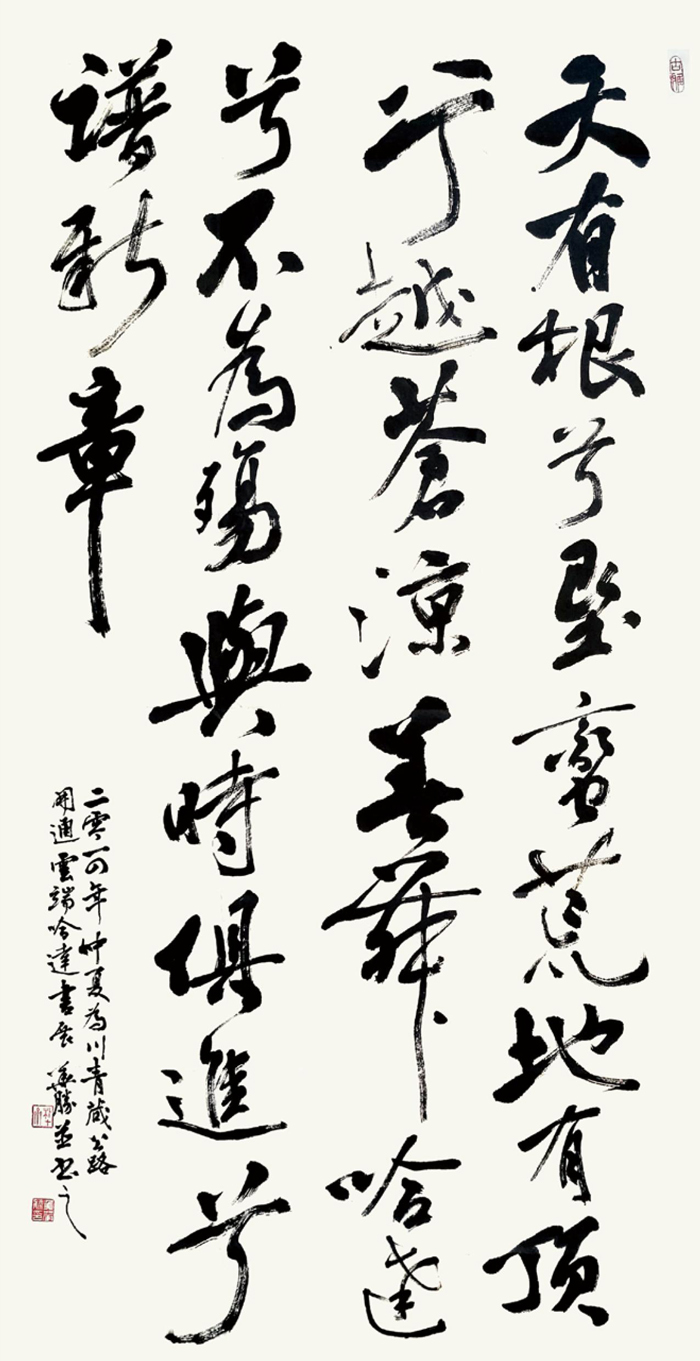 天有根兮蠻荒地有頂
兮越蒼涼善舞哈達
兮不為殤與時俱進兮
譜新章
二零一四年仲夏為川青藏公路
開通雲端哈達書展勝並書之